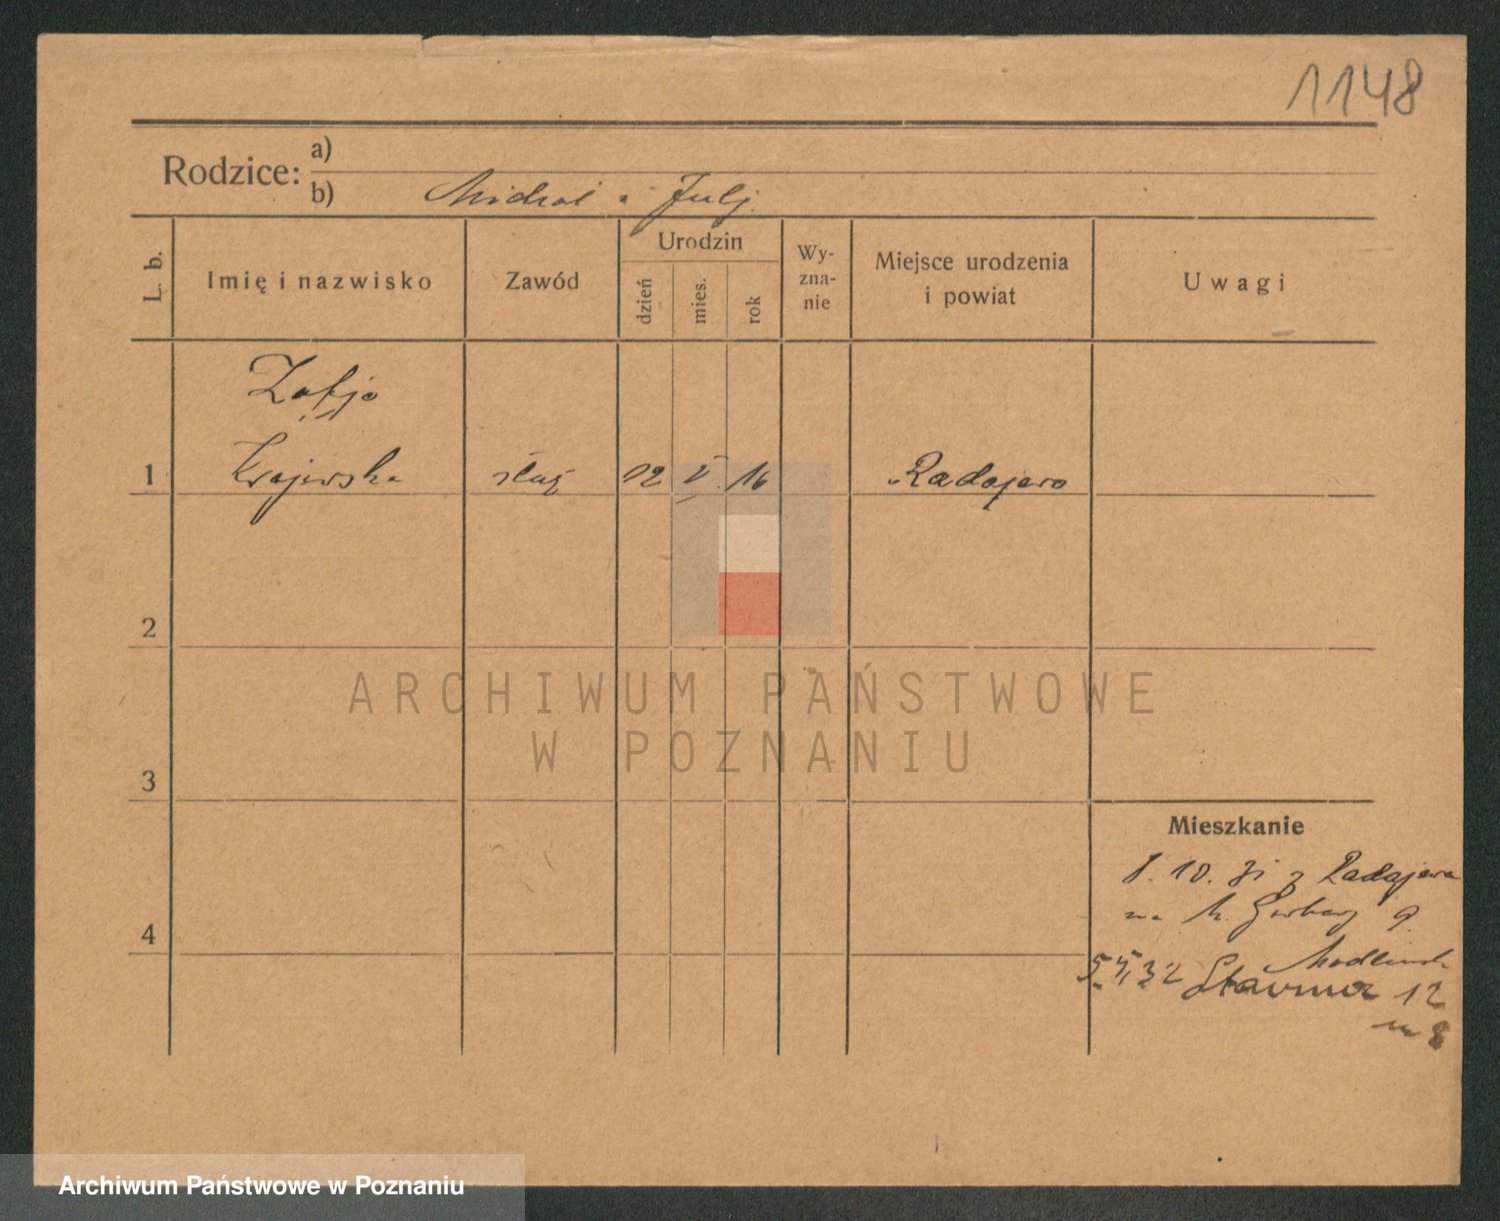 1148
Rodzice:
a)
b) Michał i Julj.
L. b.
Imię i nazwisko
Zawód
Urodzin
dzień
mies.
rok
Wy-
zna-
nie
Miejsce urodzenia
i powiat
Uwagi
Zofja
1 Krajewska służ 12 V 16 Radojewo
2
ARCHIWUM PAŃSTWOWE
W POZNANIU
3
Mieszkanie
1. 10. 31 z Radojewa
na 9
4
5. 5. 32 12
m 8
Archiwum Państwowe w Poznaniu